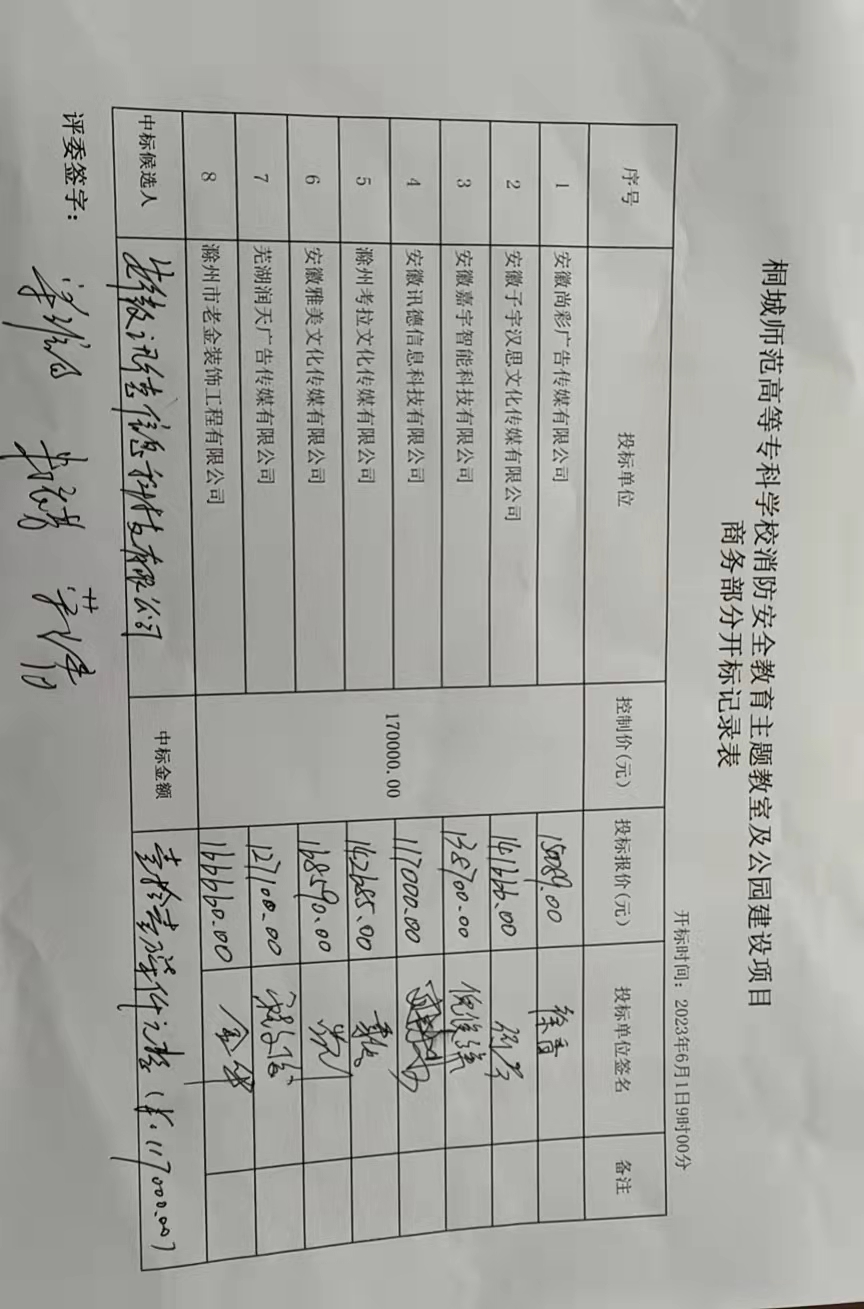 桐城师范高等专科学校消防安全教育主题教室及公园建设项目
商务部分开标记录表
开标时间：2023年6月1日9时00分
序号 投标单位 控制价(元) 投标报价(元) 投标单位签名 备注
1 安徽尚彩广告传媒有限公司 15089.00 徐香
2 安徽子宇汉思文化传媒有限公司 141666.00
3 安徽嘉宇智能科技有限公司 138700.00 倪俊
4 安徽讯德信息科技有限公司 170000.00 117000.00
5 滁州考拉文化传媒有限公司 142685.00
6 安徽雅美文化传媒有限公司 168590.00
7 芜湖润天广告传媒有限公司 127100.00
8 滁州市老金装饰工程有限公司 166660.00
中标候选人 安徽讯德信息科技有限公司 中标金额 壹拾壹万柒仟元整（¥.117000.00）
评委签字：